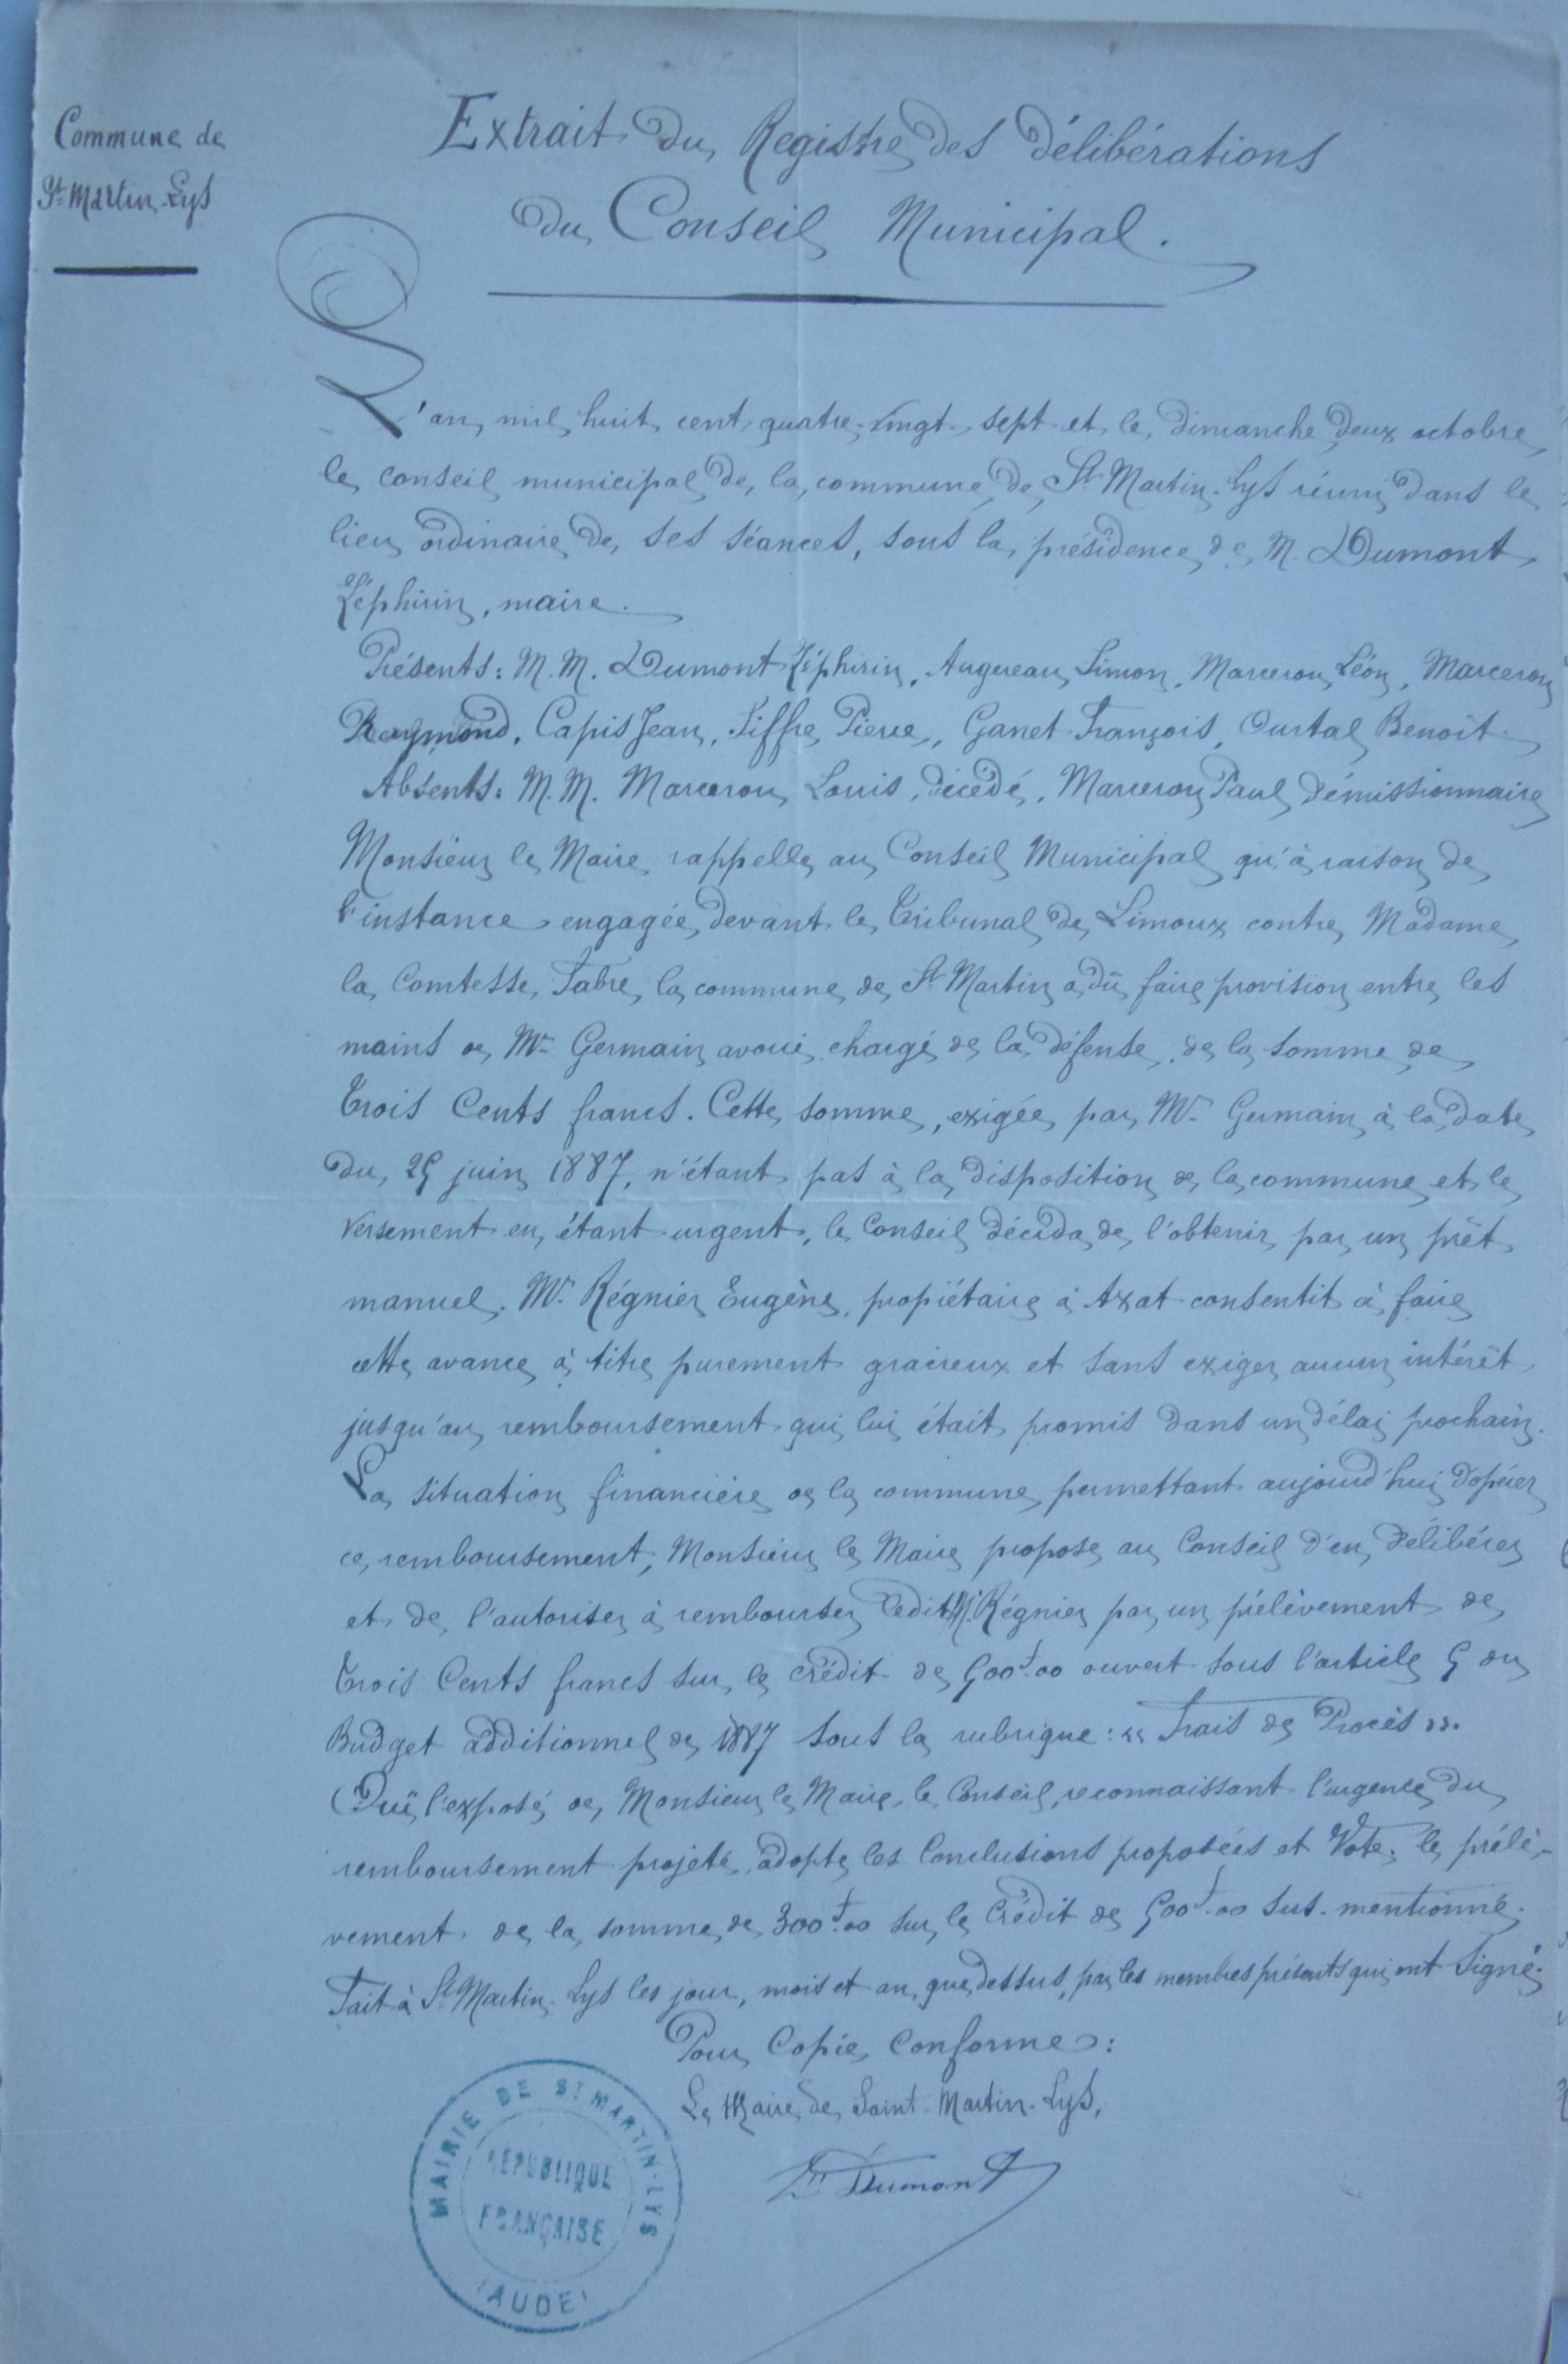 Commune de
St Martin-Lys
Extrait du Registre des délibérations
du Conseil Municipal.
L'an mil huit cent quatre-vingt-sept et le dimanche deux octobre
le conseil municipal de la commune de St Martin-Lys réuni dans le
lieu ordinaire de ses séances, sous la présidence de M. Dumont
Zéphirin, maire.
Présents: M.M. Dumont Zéphirin, Augereau Simon, Marcerou Léon, Marcerou
Raymond, Capis Jean, Siffre Pierre, Ganet François, Ourtal Benoit.
Absents: M.M. Marcerou Louis, décédé, Marcerou Paul démissionnaire
Monsieur le Maire rappelle au Conseil Municipal qu'à raison de
l'instance engagée devant le Tribunal de Limoux contre Madame
la Comtesse Fabre, la commune de St Martin a dû faire provision entre les
mains de Me Germain avoué chargé de la défense, de la somme de
Trois Cents francs. Cette somme, exigée par Me Germain à la date
du 25 juin 1887, n'étant pas à la disposition de la commune et le
versement en étant urgent, le Conseil décida de l'obtenir par un prêt
manuel. Mr Régnier Eugène, propiétaire à Axat consentit à faire
cette avance à titre purement gracieux et sans exiger aucun intérêt
jusqu'au remboursement qui lui était promis dans un délai prochain.
La situation financière de la commune permettant aujourd'hui d'opérer
ce remboursement, Monsieur le Maire propose au Conseil d'en délibérer
et de l'autoriser à rembourser ledit M. Régnier par un prélèvement de
Trois Cents francs sur le crédit de 500f.00 ouvert sous l'article 5 du
Budget additionnel de 1887 sous la rubrique: "Frais de Procès".
Ouï l'exposé de Monsieur le Maire, le Conseil, reconnaissant l'urgence du
remboursement projeté, adopte les Conclusions proposées et Vote le prélè-
vement de la somme de 300f.00 sur le Crédit de 500f.00 sus-mentionné.
Fait à St Martin-Lys les jour, mois et an que dessus, par les membres présents qui ont Signé.
Pour Copie Conforme:
Le Maire de Saint-Martin-Lys,
Zin Dumont
MAIRIE DE ST MARTIN-LYS
RÉPUBLIQUE
FRANÇAISE
(AUDE)